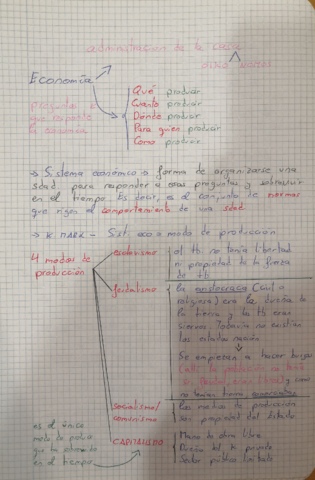 administración de la casa
Economía
Qué producir
Cuánto producir
Dónde producir
Para quien producir
Como producir
preguntas a
que responde
la economía
→ Sistema económico → forma de organizarse una
sdad para responder a esas preguntas y sobrevivir
en el tiempo. Es decir, es el conjunto de normas
que rigen el comportamiento de una sdad
→ K. MARX - Sist. eco a modo de producción
4 modos de
producción
esclavismo
el tb no tenía libertad
ni propiedad de la fuerza
de tb
feudalismo
la aristocracia (civil o
religiosa) era la dueña de
la tierra y los tb eran
siervos. Todavía no existían
los estados nación
Se empiezan a hacer
la población
y como
no tenían tierra
socialismo/
comunismo
los medios de producción
son propiedad del Estado
CAPITALISMO
Mano de obra libre
privada
Sector público limitado
es el único
modo de
que ha
en el tiempo